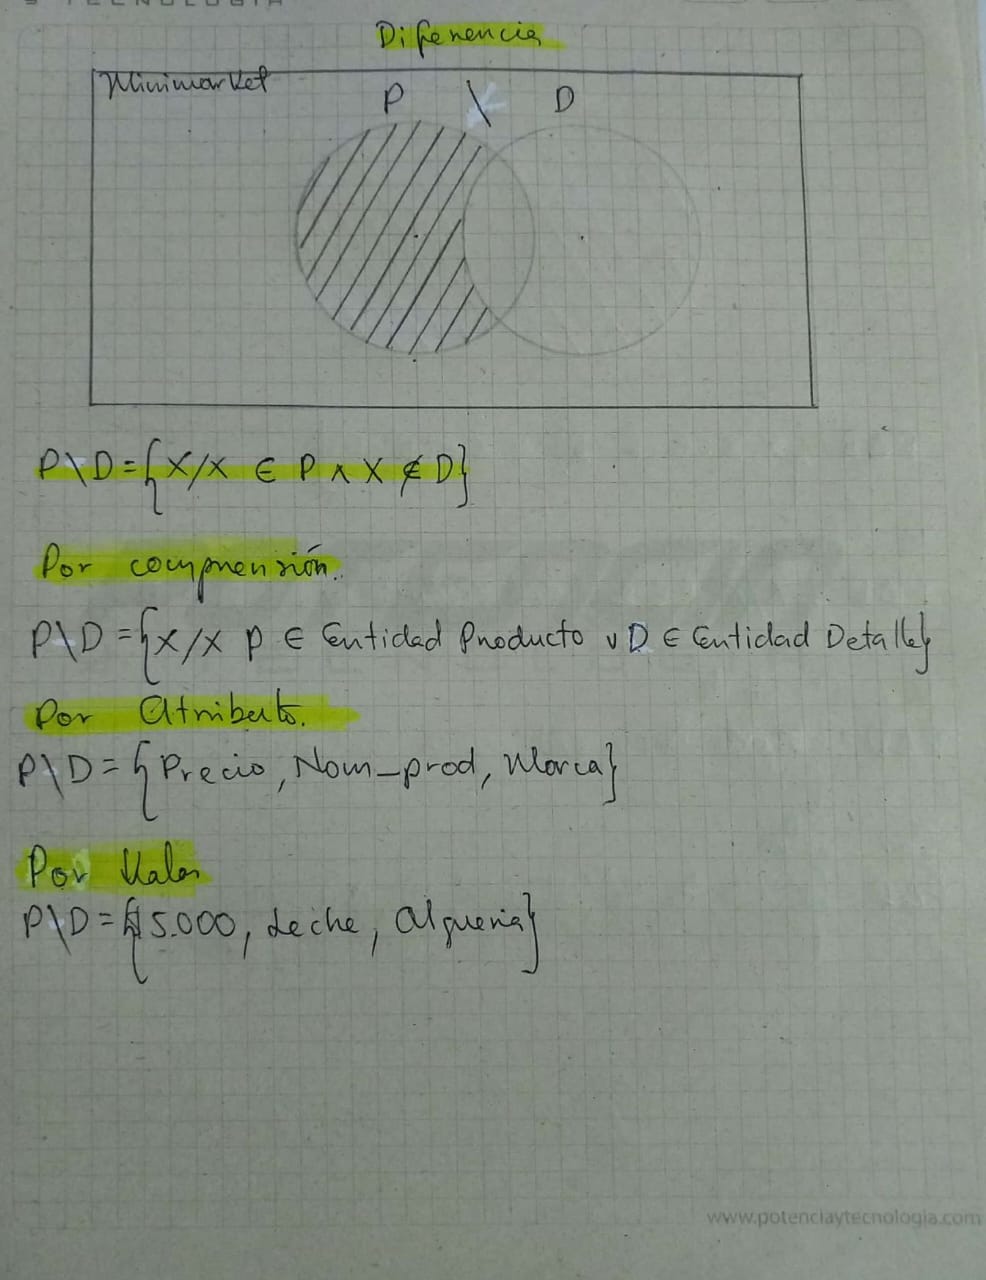 TECNOLOGIA
Diferencia
Minimarket
P \ D
P\D={x/x ∈ P ∧ x ∉ D}
Por comprensión.
P\D={x/x p ∈ Entidad Producto ∨ D ∈ Entidad Detalle}
Por Atributo.
P\D={Precio, Nom_prod, Marca}
Por Valor
P\D={$5.000, Leche, Alqueria}
www.potenciaytecnologia.com